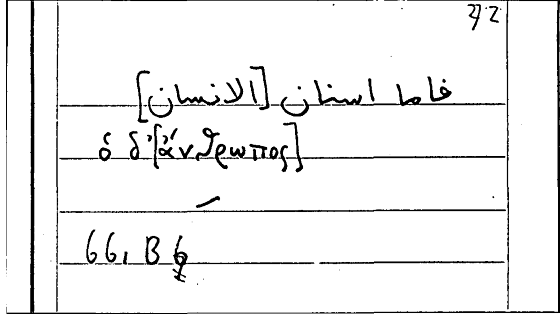 272
فاما اسنان [الانسان]
ὁ δ’[ἄνθρωπος]
66, B 6